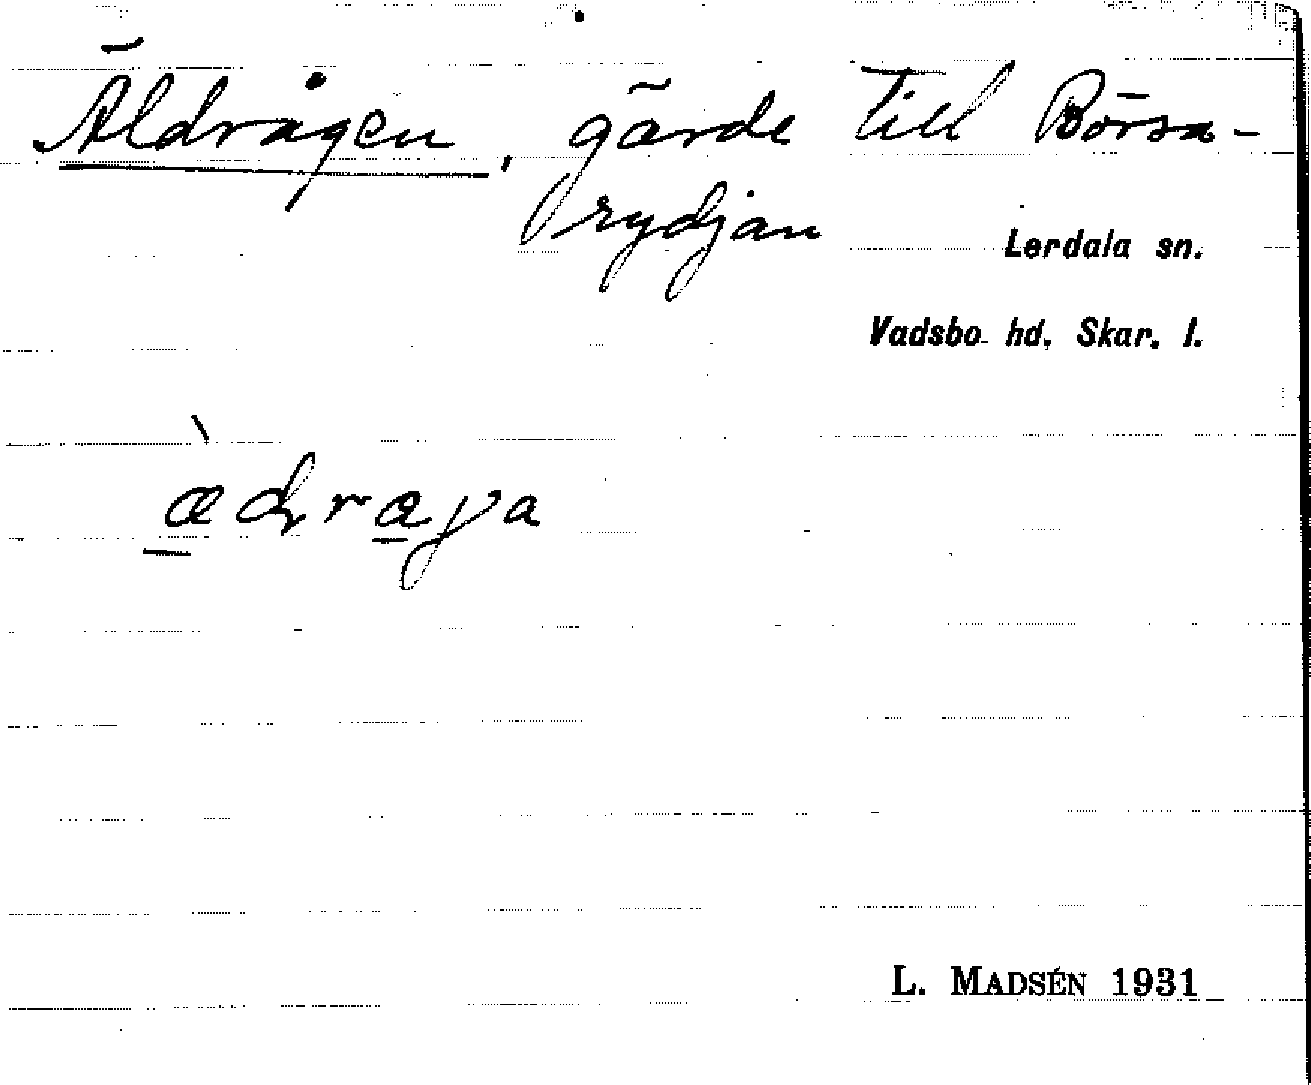 Äldrågen, gärde till Börsa-
rydjan
Lerdala sn.
Vadsbo hd. Skar. l.
L. MADSÉN 1931